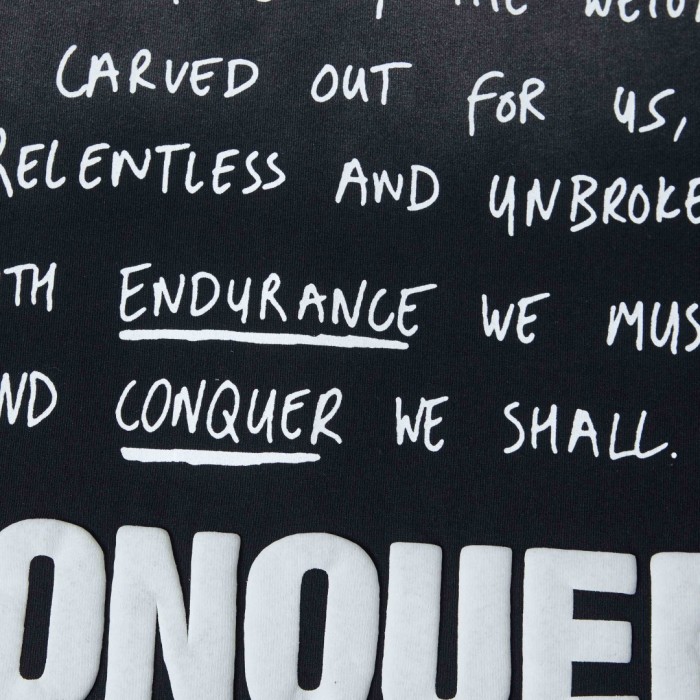 THE
CARVED OUT FOR US,
RELENTLESS AND UNBROKE
TH ENDURANCE WE MUS
ND CONQUER WE SHALL.
ONQUE